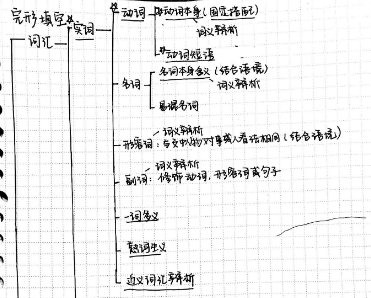 完形填空
词汇
实词
动词
动词本身(固定搭配)
词义辨析
动词短语
名词
名词本身含义(结合语境)
词义辨析
易混名词
词义辨析
形容词:与文中的对事或人看法相同(结合语境)
词义辨析
副词:修饰动词,形容词或句子
一词多义
熟词生义
近义词汇辨析